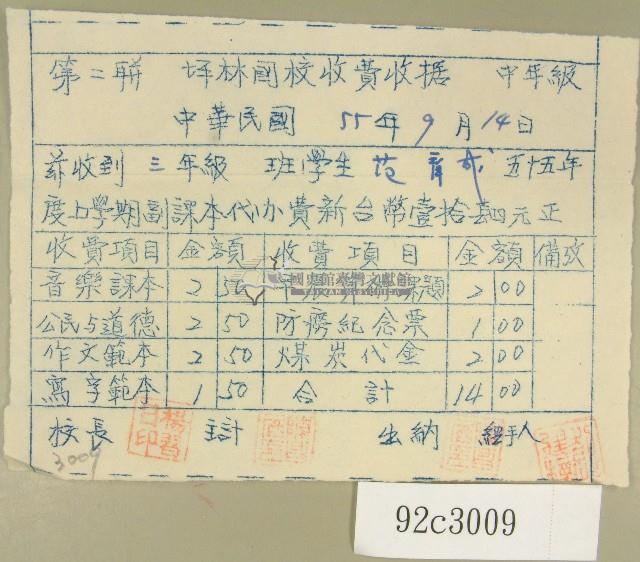 第二联 坪林國校收費收据 中年級
中華民國 55年9月14日
茲收到 三年級 班學生 范 五十五年
度上學期副課本代办費新台幣壹拾肆元正
收費項目 金額 收費項目 金額 備攷
音樂課本 2 50 課題 2 00
公民与道德 2 50 防癆紀念票 1 00
作文範本 2 50 煤炭代金 2 00
寫字範本 1 50 合計 14 00
校長 主計 出納 經手人
國史館臺灣文獻館
TAIWAN HISTORICA
3009
92c3009